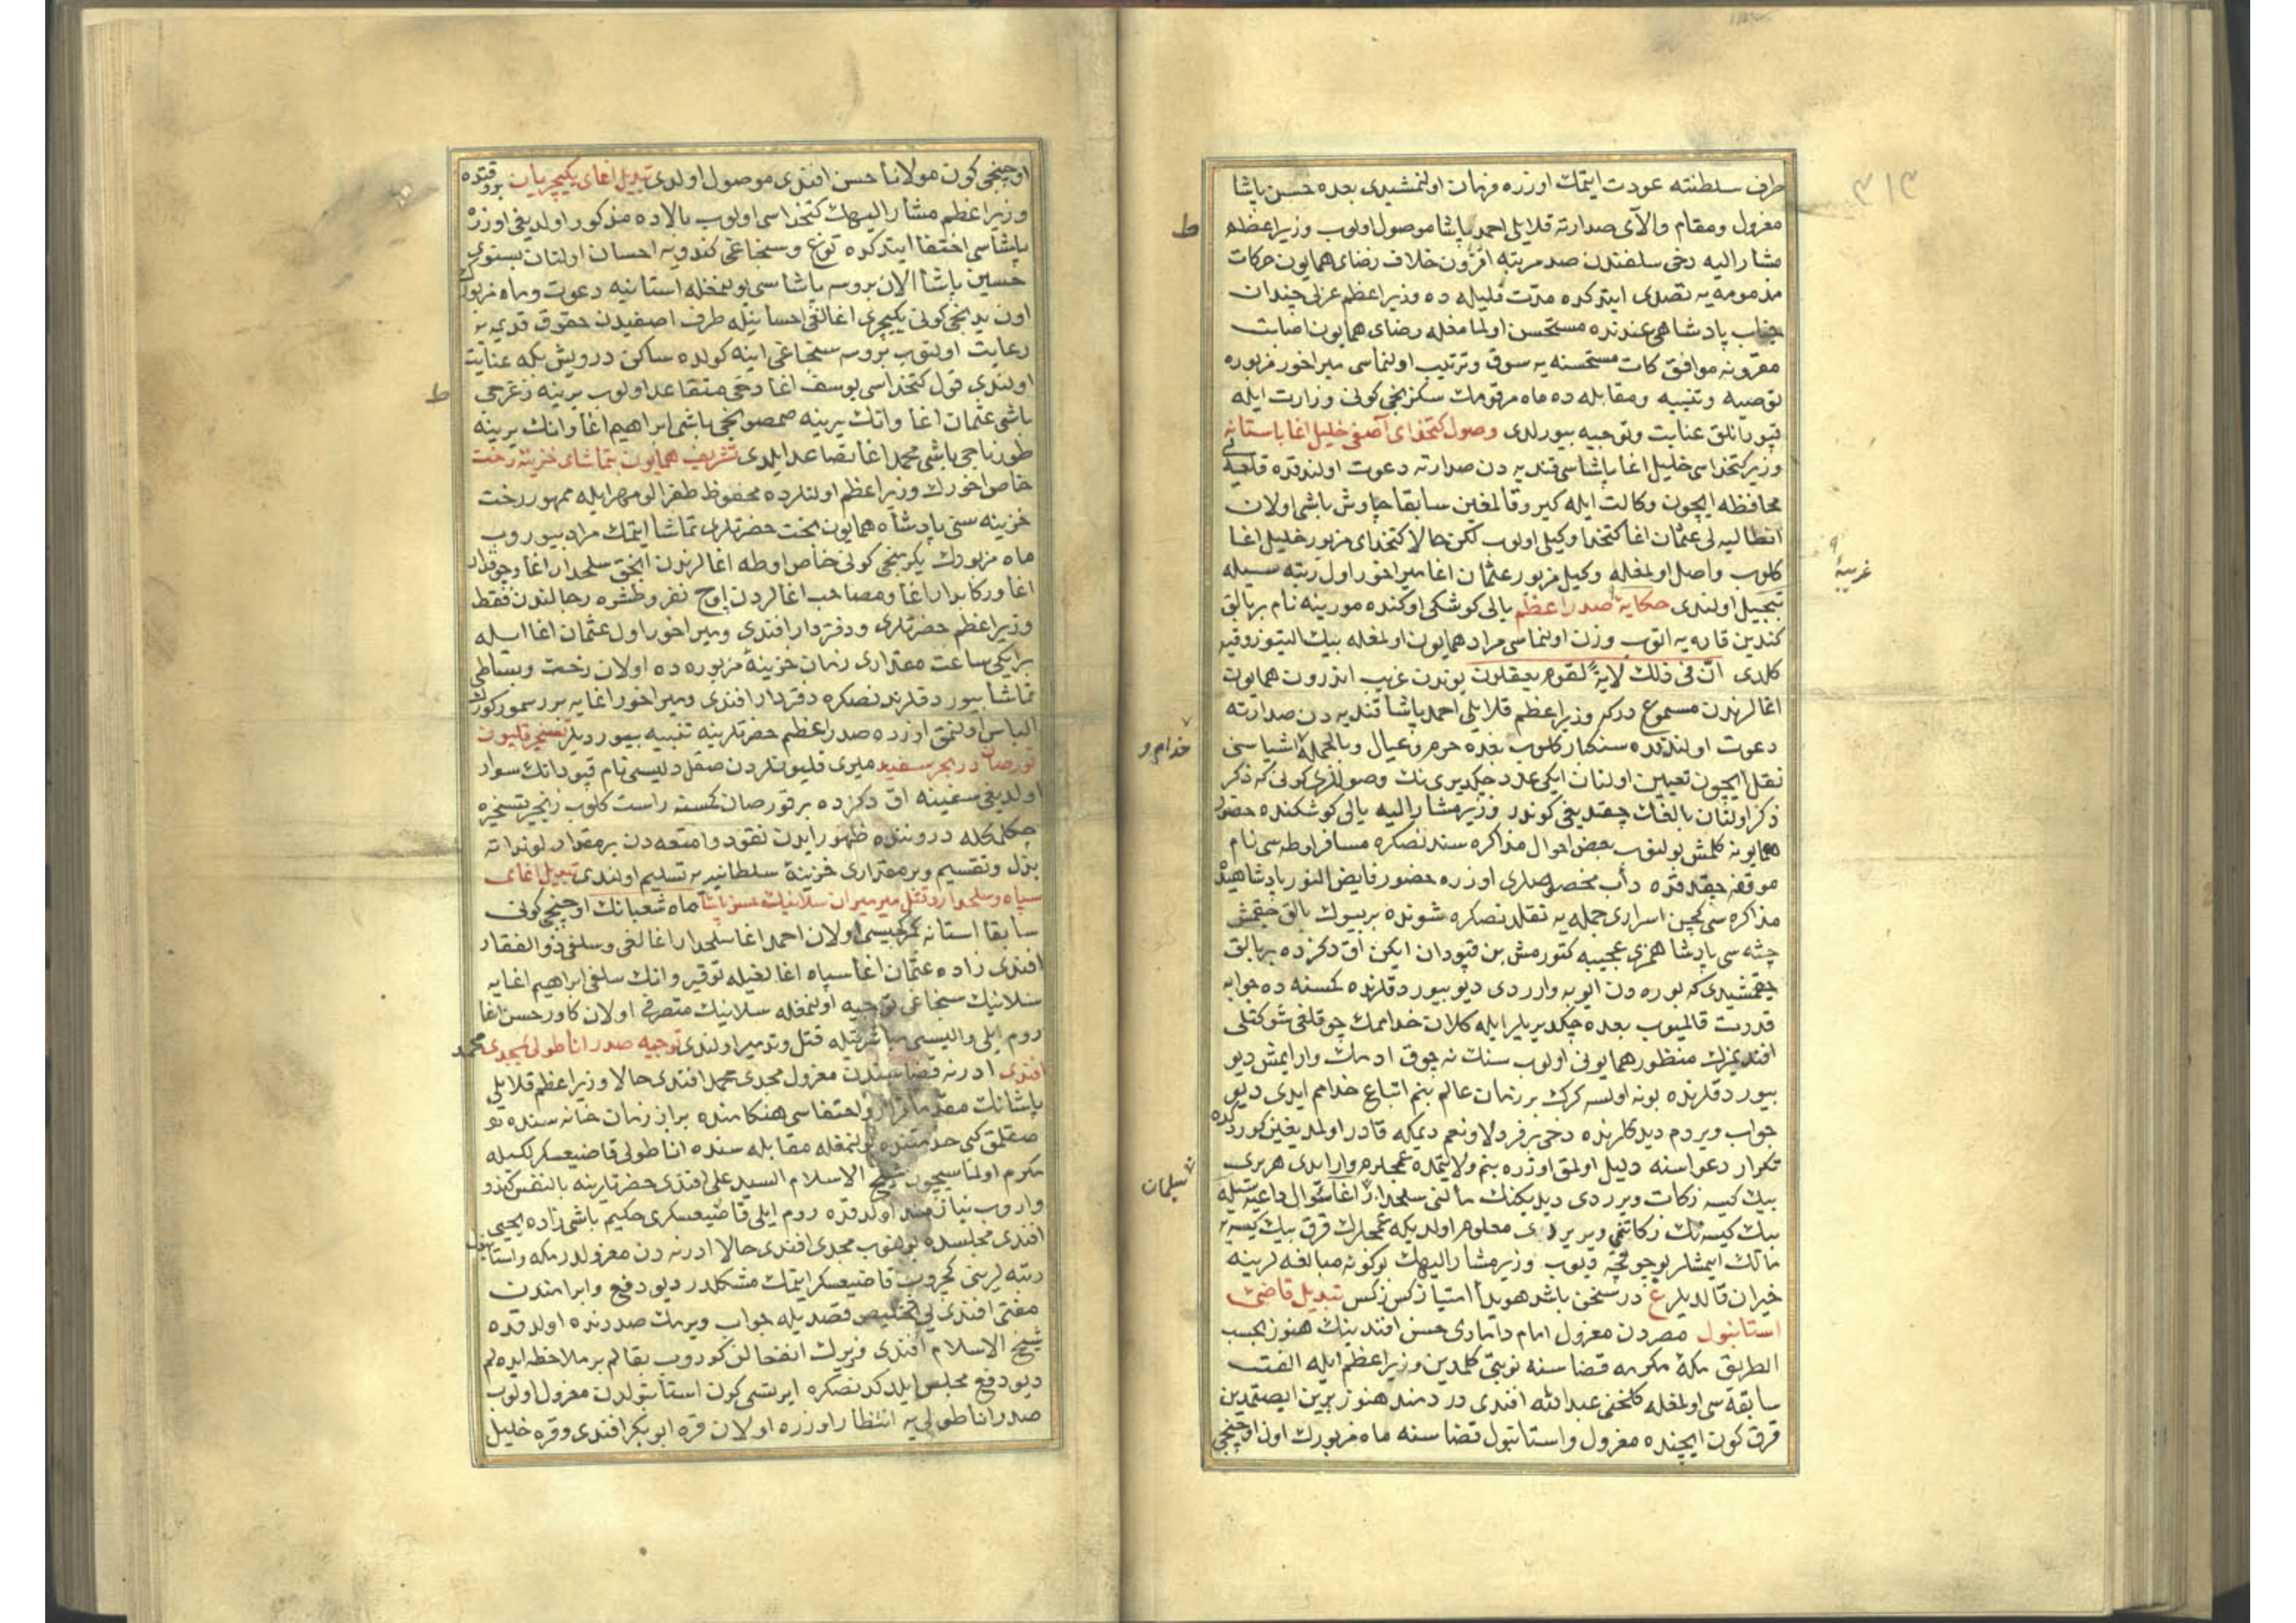 طرف سلطنته عودت ایتمك اوزره فرمان اولنمشیدی بعده حسن پاشا
معزول ومقام والای صدارته قلایلی احمد پاشا موصول اولوب وزیراعظم
مشار الیه دخی سلفندن صد مرتبه افزون خلاف رضای همایون حرکات
مذمومه یه تصدی ایتدکده مدت قلیله ده وزیراعظم عزلی چندان
جناب پادشاهی عندنده مستحسن اولمامغله رضای همایون اصابت
مقرونه موافق کات مستحسنه یه سوق وترتیب اولنماسی میراخور مزبوره
توصیه وتنبیه ومقابله ده ماه مرقومك سکزنجی کونی وزارت ایله
قپودانلق عنایت وتوجیه بیورلدی وصول کتخدای آصفی خلیل اغا باستانه
وزیر کتخداسی خلیل اغا پاشاسی قندیه دن صدارته دعوت اولندقده قلعه یی
محافظه ایچون وکالت ایله کیرو قالمغین سابقا چاوش باشی اولان
انطالیه لی عثمان اغا کتخدا وکیلی اولوب لکن حالا کتخدای مزبور خلیل اغا
کلوب واصل اولمغله وکیل مزبور عثمان اغا میراخور اول رتبه سیله
تبجیل اولندی حکایهٔ صدر اعظم یالی کوشکی اوکنده مورینه نام بر بالق
غریبهٔ
کندین قاره یه اتوب وزن اولنماسی مراد همایون اولمغله بیك الیتوز وقیه
کلدی انّ فی ذلك لایة لقوم یعقلون بوندن غریب اندرون همایون
اغالرندن مسموع درکه وزیراعظم قلایلی احمد پاشا قندیه دن صدارته
دعوت اولندقده سنکبار کلوب بعده حرم وعیال وبالجمله اشیاسنی
خدام و
نقل ایچون تعیین اولنان ایکی عدد چکدیری نك وصوللری کونی که ذکر
ذکر اولنان بالغك چقدیغی کوندر وزیر مشار الیه یالی کوشکنده حضور
همایونه کلمش بولنوب بعض احوال مذاکره سندنصکره مسافر اوطه سی نام
موقفه چقدقده دأب مخصوصلری اوزره حضور فایض النور پادشاهیده
مذاکره سی کچن اسراری جمله یه نقلدنصکره شونده بر بیوك بالق چقمش
چشه سی پادشاهمزی عجیبه کتورمش بن قپودان ایکن اق دکزده بر بالق
چقمشیدی که بوره دن ایوبه واردی دیو بیوردقلرنده کمسنه ده جوابه
قدرت قالمیوب بعده چکدیریلر ایله کلان خدامك چوقلغی شوکتلی
افندیمزك منظور همایونی اولوب سنك نه چوق ادمك وارایمش دیو
بیوردقلرنده بونه اولسه کرك بر زمان عالم بنم اتباع خدامم ایدی دیو
جواب ویردم دیدکلرنده دخی بر فرد لا ونعم دیمکه قادر اولمدیغین کوردکده
تکرار دعواسنه دلیل اولمق اوزره بنم ولایتمده عمجلرم وارایدی هر بری
سلمان
بیك کیسه زکات ویرردی دیدیکنك مالنی سلحدار اغا سؤال داعیه سیله
بیك کیسه نك زکاتنمی ویریردی معلوم اولدیکه عمجلرك قرق بیك کیسه یه
مالك ایمشلر بو چوقچه دیوب وزیر مشار الیهك بوکونه مبالغه لرینه
حیران قالدیلر ع در سخن باشد هویدا امتیاز کس ز کس تبدیل قاضئ
استانبول مصردن معزول امام دامادی حسن افندینك هنوز بحسب
الطریق مکهٔ مکرمه قضاسنه نوبتی کلمدین وزیراعظم ایله الفت
سابقه سی اولمغله کلخنی عبدالله افندی دردمند هنوز یرین ایصتمدین
قرق کون ایچنده معزول واستانبول قضاسنه ماه مزبورك اون اوچنجی
اوچنجی کون مولانا حسن افندی موصول اولدی تبدیل اغای یکیچریان بو وقتده
وزیراعظم مشار الیهك کتخداسی اولوب بالاده مذکور اولدیغی اوزره
پاشاسی اختفا ایتدکده توغ وسنجاغی کندویه احسان اولنان بستونی
حسین پاشا الان بروسه پاشاسی بولنمغله استانیه دعوت وماه مزبورك
اون یدنجی کونی یکیچری اغالغی احسانیله طرف اصفیدن حقوق قدیمه یه
رعایت اولنوب بروسه سنجاغی اینه کولده ساکن درویش بکه عنایت
اولندی قول کتخداسی یوسف اغا دخی متقاعد اولوب یرینه زغرجی
باشی عثمان اغا وانك یرینه صمصونجی باشی ابراهیم اغا وانك یرینه
طورناجی باشی محمد اغا تصاعد ایلدی تشریف همایون بتماشای خزینهٔ رخت
خاص اخورك وزیراعظم اولنلرده محفوظ طغرالو مهر ایله ممهور رخت
خزینه سنی پادشاه همایون بخت حضرتلری تماشا ایتمك مراد بیوروب
ماه مزبورك یکرمنجی کونی خاص اوطه اغالرندن انجق سلحدار اغا وچوقدار
اغا ورکابدار اغا ومصاحب اغالردن اوچ نفر وطشره رجالندن فقط
وزیراعظم حضرتلری ودفتردار افندی ومیراخور اول عثمان اغا ایله
بر ایکی ساعت مقداری زمان خزینهٔ مزبوره ده اولان رخت وبساطی
تماشا بیوردقلرندنصکره دفتردار افندی ومیراخور اغایه برر سمور کورك
الباس اولنمق اوزره صدراعظم حضرتلرینه تنبیه بیوردیلر تسخیر قلیون
قورصان در بحر سفید میری قلیونلردن صقل دلیسی نام قپودانك سوار
اولدیغی سفینه اق دکزده بر قورصان کمسنه راست کلوب زنجیر تسخیره
چکلمکله دروننده ظهور ایدن نقود وامتعه دن بر مقدار لونداته
بذل وتقسیم وبر مقداری خزینهٔ سلطانیه یه تسلیم اولندی تبدیل اغای
سپاه وسلحدار وقتل میرمیران سلانیك حسن پاشا ماه شعبانك اوچنجی کونی
سابقا استانه کمرکجیسی اولان احمد اغا سلحدار اغالغی وسلفی ذوالفقار
افندی زاده عثمان اغا سپاه اغالغیله توقیر وانك سلفی ابراهیم اغایه
سلانیك سنجاغی توجیه اولنمغله سلانیك متصرفی اولان کاور حسن اغا
روم ایلی والیسی مباشرتیله قتل وتدمیر اولندی توجیه صدر اناطولی بمجدی محمد
افندی ادرنه قضاسندن معزول مجدی محمد افندی حالا وزیراعظم قلایلی
پاشانك مقدما فرار واختفاسی هنکامنده بر از زمان خانه سنده
صقلمق کبی خدمتنده بولنمغله مقابله سنده اناطولی قاضیعسکرلکیله
مکرم اولماسیچون شیخ الاسلام السید علی افندی حضرتلرینه بالنفس کندو
واروب نیازمند اولدقده روم ایلی قاضیعسکری حکیم باشی زاده یحیی
افندی مجلسده بولنوب مجدی افندی حالا ادرنه دن معزولدر مکه واستانبول
رتبه لرینی کچروب قاضیعسکر ایتمك مشکلدر دیو دفع وابرامندن
مفتی افندی یی تخلیص قصدیله جواب ویرمك صددنده اولدقده
شیخ الاسلام افندی فزیرك انفعالن کوروب بقالم بر ملاحظه ایده لم
دیو دفع مجلس ایلدکدنصکره ایرتسی کون استانبولدن معزول اولوب
صدر اناطولی یه انتظار اوزره اولان قره ابوبکر افندی وقره خلیل